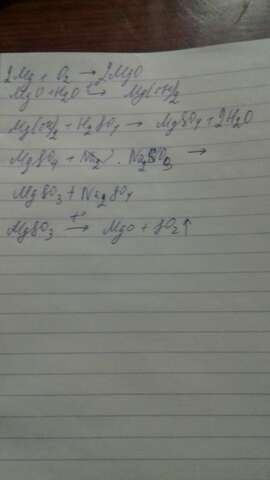 2Mg + O₂ → 2MgO
MgO + H₂O → Mg(OH)₂
Mg(OH)₂ + H₂SO₄ → MgSO₄ + 2H₂O
MgSO₄ + Na₂SO₃ →
MgSO₃ + Na₂SO₄
MgSO₃ →t° MgO + SO₂↑